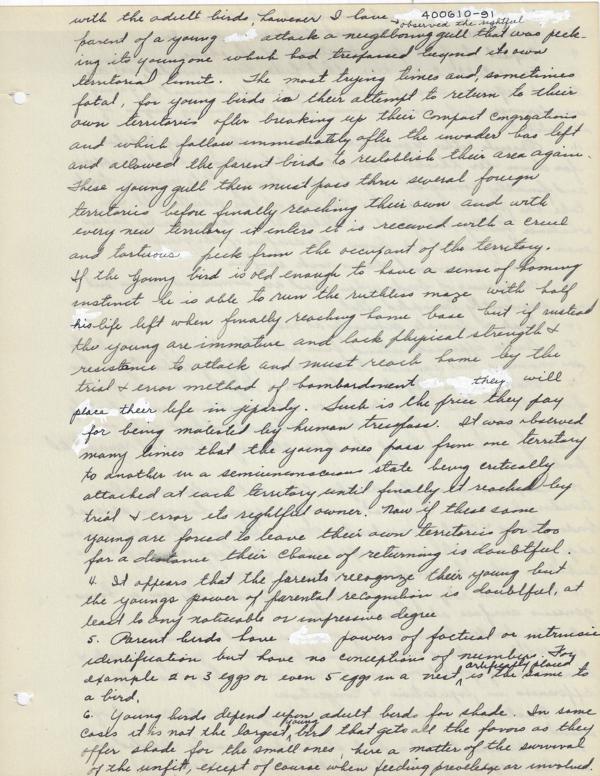 400610-91
with the adult birds, however I have observed the rightful
parent of a young attack a neighboring gull that was peck-
ing its young one which had trespassed beyond its own
territorial limit. The most trying times and, sometimes
fatal, for young birds is their attempt to return to their
own territories after breaking up their compact congregations
and which follow immediately after the invader has left
and allowed the parent birds to restablish their area again.
These young gull then must pass thru several foreign
territories before finally reaching their own and with
every new territory it enters it is received with a cruel
and tortuous peck from the occupant of the territory.
If the young bird is old enough to have a sense of homing
instinct he is able to run the ruthless maze with half
his life left when finally reaching home base but if instead
the young are immature and lack physical strength &
resistance to attack and must reach home by the
trial & error method of bombardment they will
place their life in jepardy. Such is the price they pay
for being molested by human trespass. It was observed
many times that the young ones pass from one territory
to another in a semiunconscious state being critically
attacked at each territory until finally it reached by
trial & error its rightful owner. Now if these same
young are forced to leave their own territories for too
far a distance their chance of returning is doubtful.
4. It appears that the parents recognize their young but
the youngs power of parental recognition is doubtful, at
least to any noticable or impressive degree
5. Parent birds have powers of factual or intrinsic
identification but have no conceptions of number. For
example 2 or 3 eggs or even 5 eggs in a nest artificially placed is the same to
a bird.
6. Young birds depend upon adult birds for shade. In some
cases it is not the largest young bird that gets all the favors as they
offer shade for the small ones, here a matter of the survival
of the unfit, except of course when feeding previlege or involved.